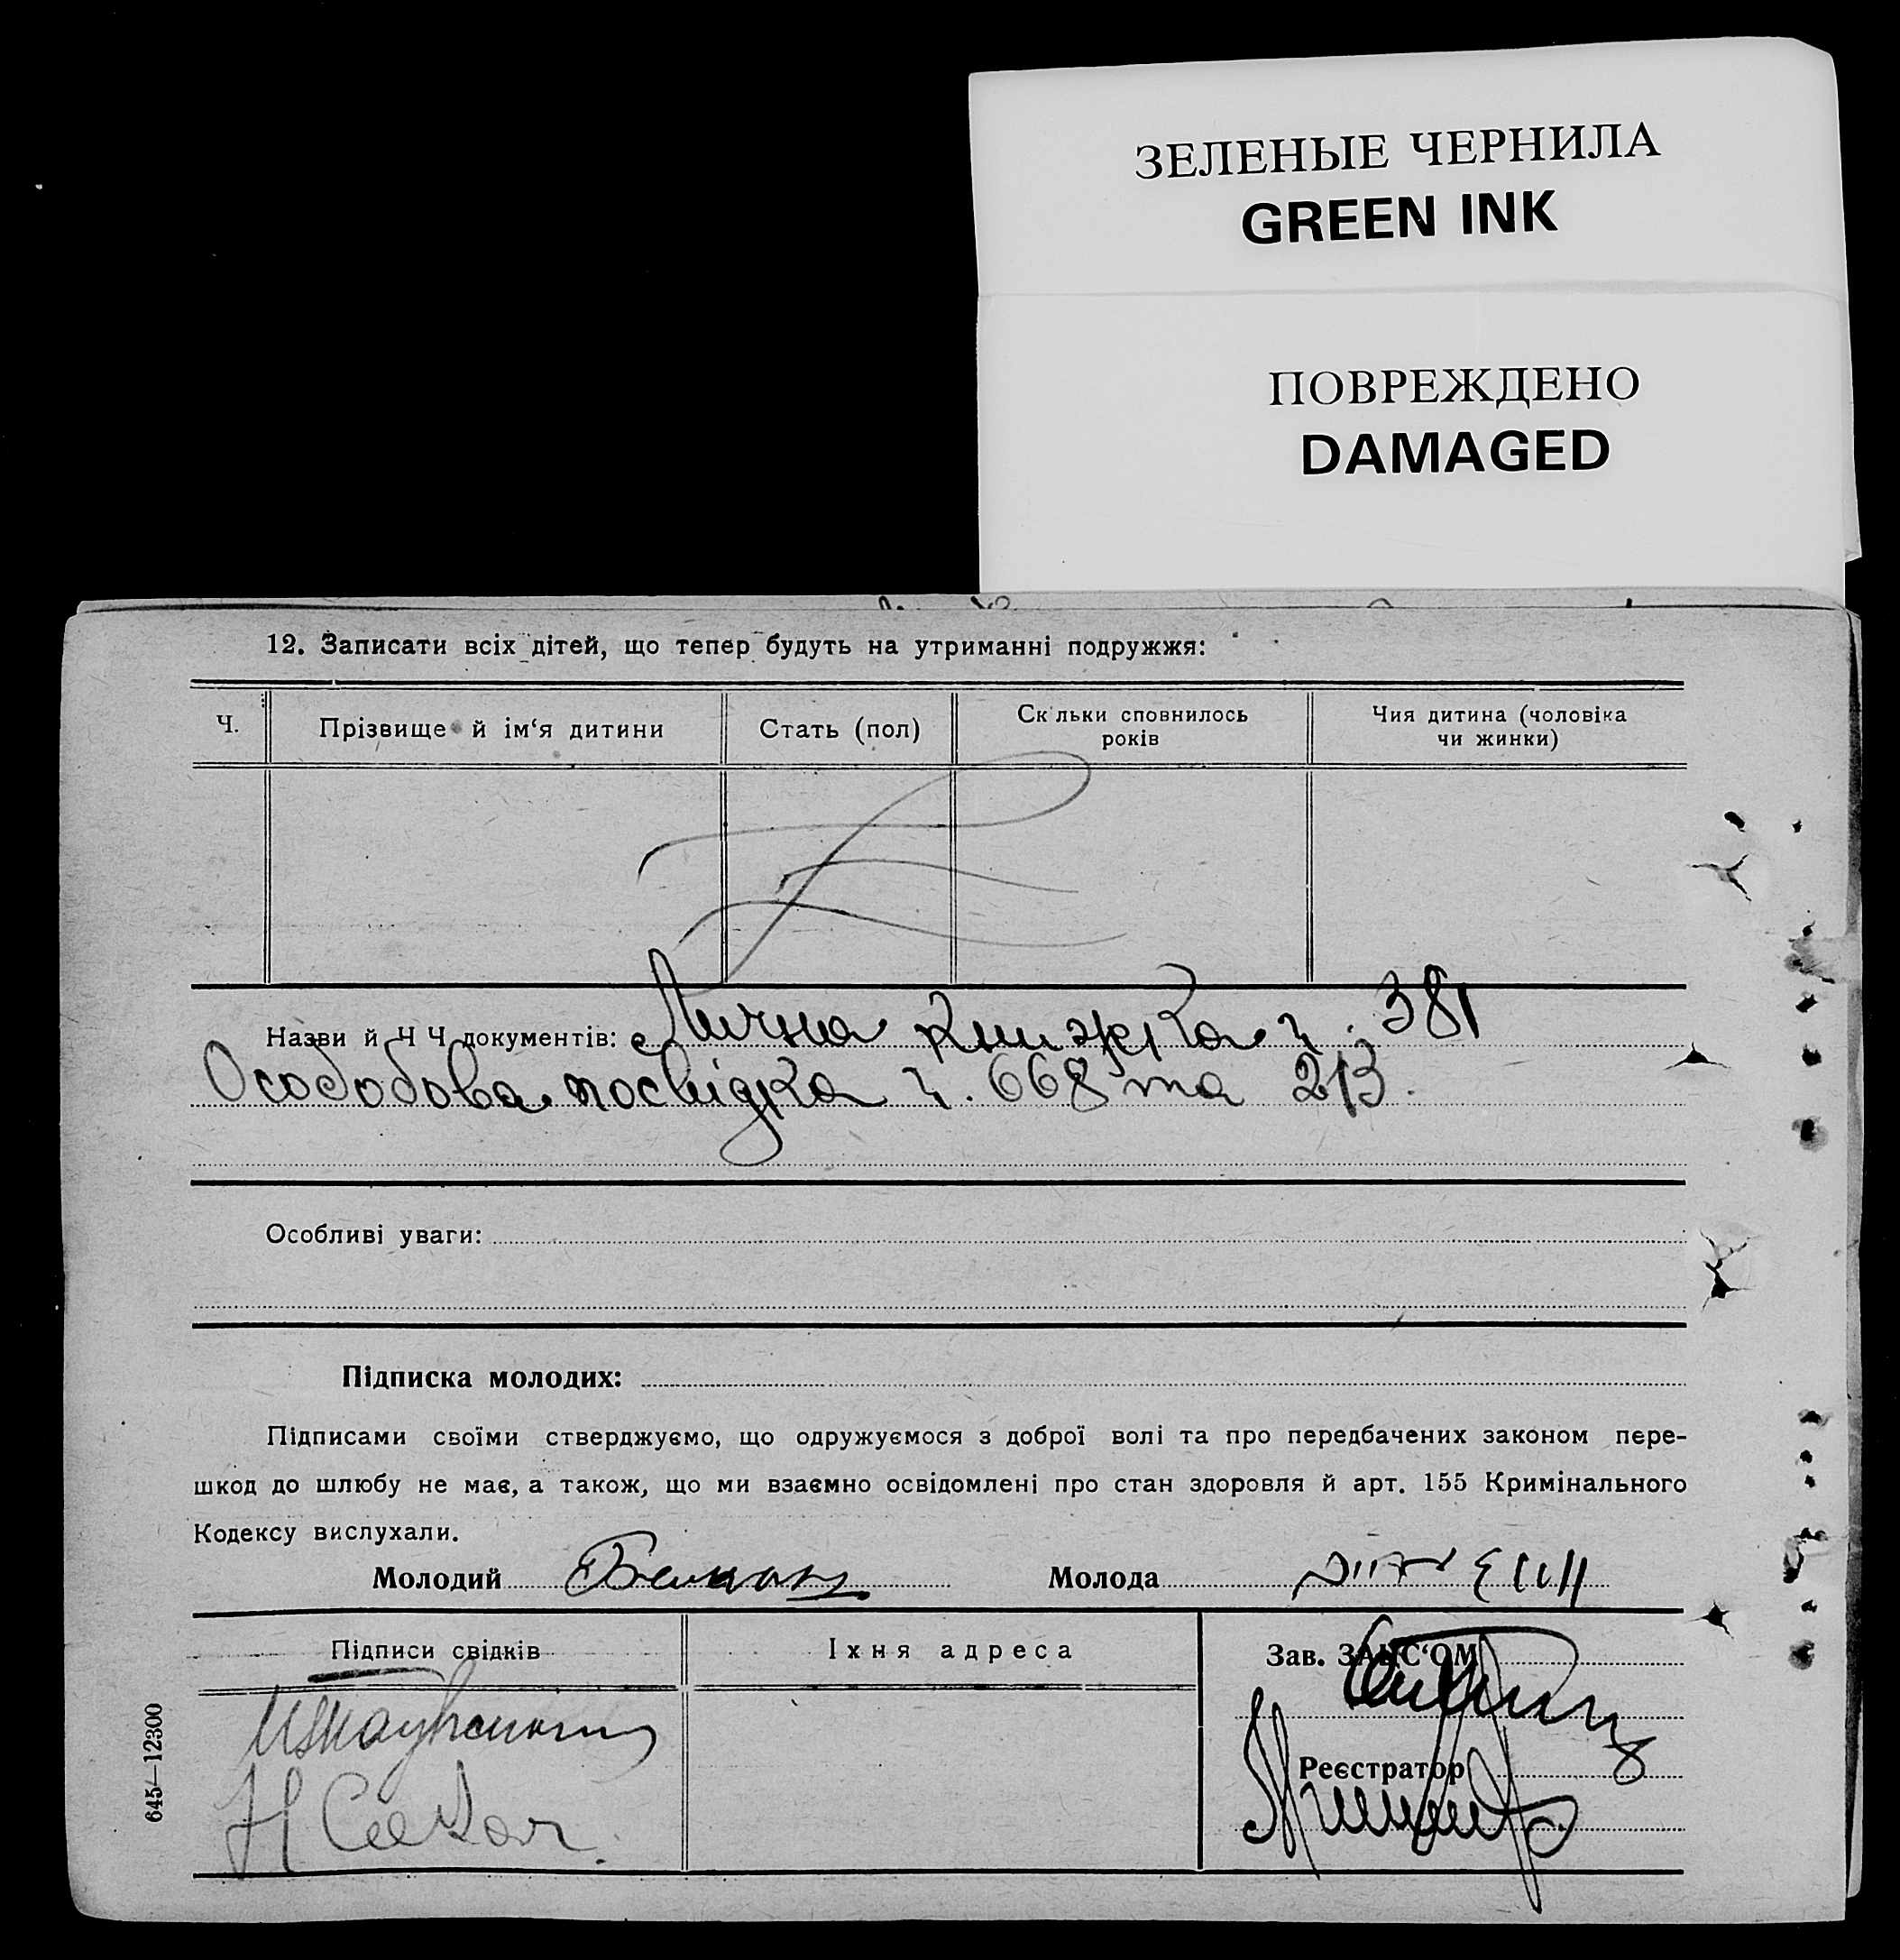 ЗЕЛЕНЫЕ ЧЕРНИЛА
GREEN INK
ПОВРЕЖДЕНО
DAMAGED
12. Записати всіх дітей, що тепер будуть на утриманні подружжя:
Ч. Прізвище й ім‘я дитини Стать (пол) Ск льки сповнилось років Чия дитина (чоловіка чи жинки)
Назви й Ч Ч документів: Лична книжка ч. 381
Особобова посвідка ч. 668 та 213.
Особливі уваги:
Підписка молодих:
Підписами своїми стверджуємо, що одружуємося з доброї волі та про передбачених законом пере-
шкод до шлюбу не має, а також, що ми взаємно освідомлені про стан здоровля й арт. 155 Кримінального
Кодексу вислухали.
Молодий Молода
Підписи свідків Іхня адреса Зав. ЗАГС‘ОМ
Реєстратор
645—12300